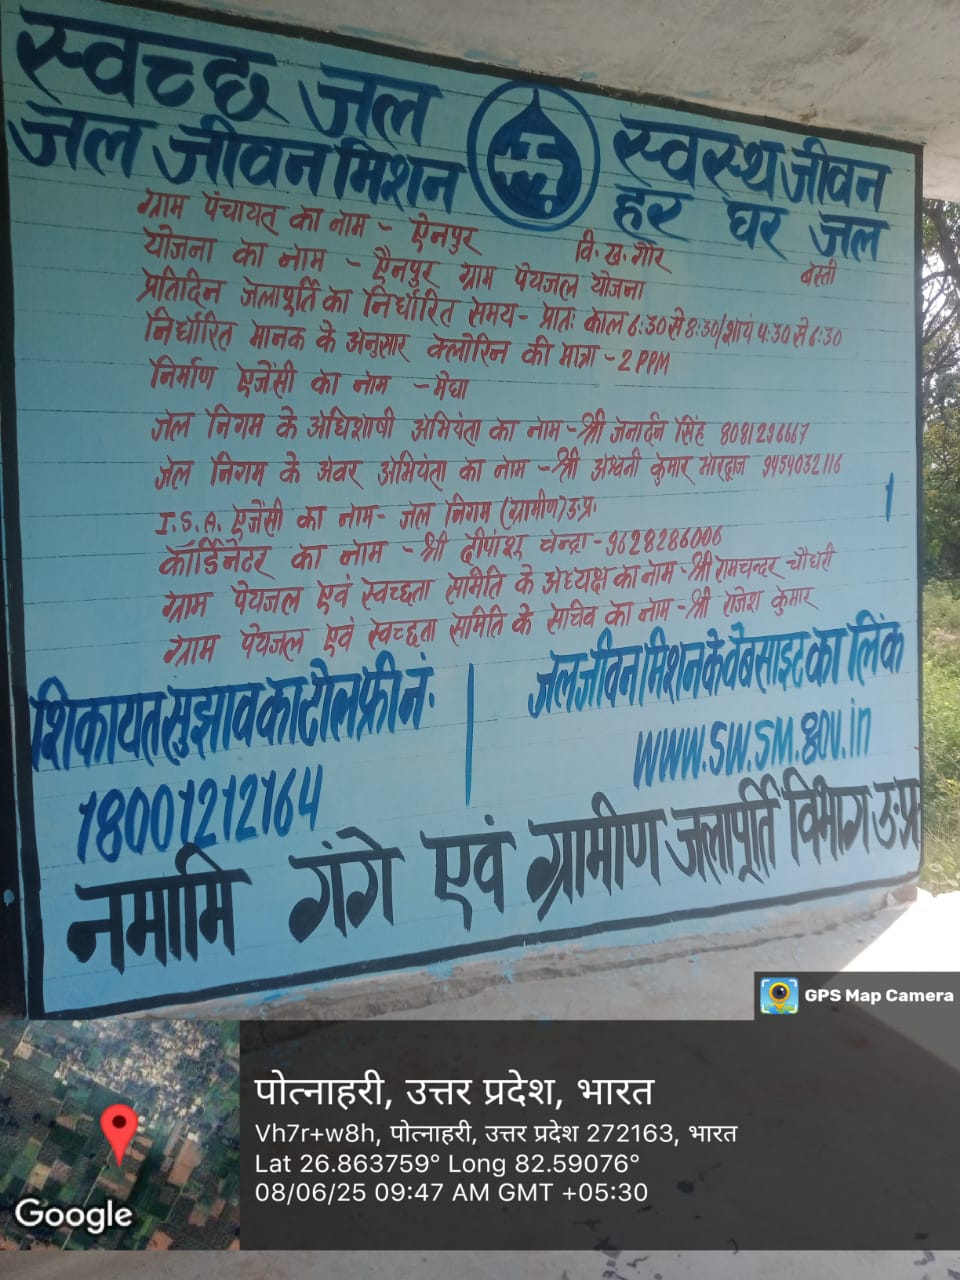 स्वच्छ जल स्वस्थ जीवन
जल जीवन मिशन हर घर जल
ग्राम पंचायत का नाम - ऐनपुर वि. ख. गौर बस्ती
योजना का नाम - ऐनपुर ग्राम पेयजल योजना
प्रतिदिन जलापूर्ति का निर्धारित समय - प्रातः काल 6:30 से 8:30/शायं 4:30 से 6:30
निर्धारित मानक के अनुसार क्लोरिन की मात्रा - 2 PPM
निर्माण एजेंसी का नाम - मेघा
जल निगम के अधिशाषी अभियंता का नाम - श्री जनार्दन सिंह 8081296667
जल निगम के अवर अभियंता का नाम - श्री अश्वनी कुमार भारद्वाज 9454032116
I.S.A. एजेंसी का नाम - जल निगम (ग्रामीण) उ.प्र.
कॉर्डिनेटर का नाम - श्री दीपांशू चन्द्रा - 9628286006
ग्राम पेयजल एवं स्वच्छता समिति के अध्यक्ष का नाम - श्री रामचन्दर चौधरी
ग्राम पेयजल एवं स्वच्छता समिति के सचिव का नाम - श्री राजेश कुमार
शिकायत सुझाव का टोल फ्री नं.
18001212164
जल जीवन मिशन के वेबसाइट का लिंक
www.sw.sm.gov.in
नमामि गंगे एवं ग्रामीण जलापूर्ति विभाग उ.प्र.
GPS Map Camera
पोत्नाहरी, उत्तर प्रदेश, भारत
Vh7r+w8h, पोत्नाहरी, उत्तर प्रदेश 272163, भारत
Lat 26.863759° Long 82.59076°
08/06/25 09:47 AM GMT +05:30
Google